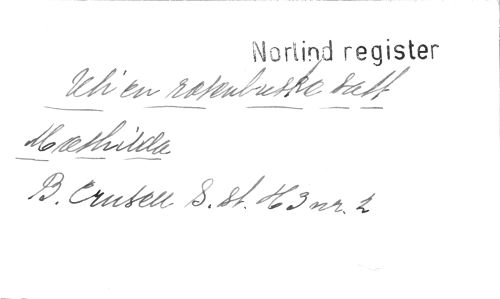 Norlind register
Uti en rosenbuske satt
Mathilda
B. Crusell S. st. H 3 nr. 2